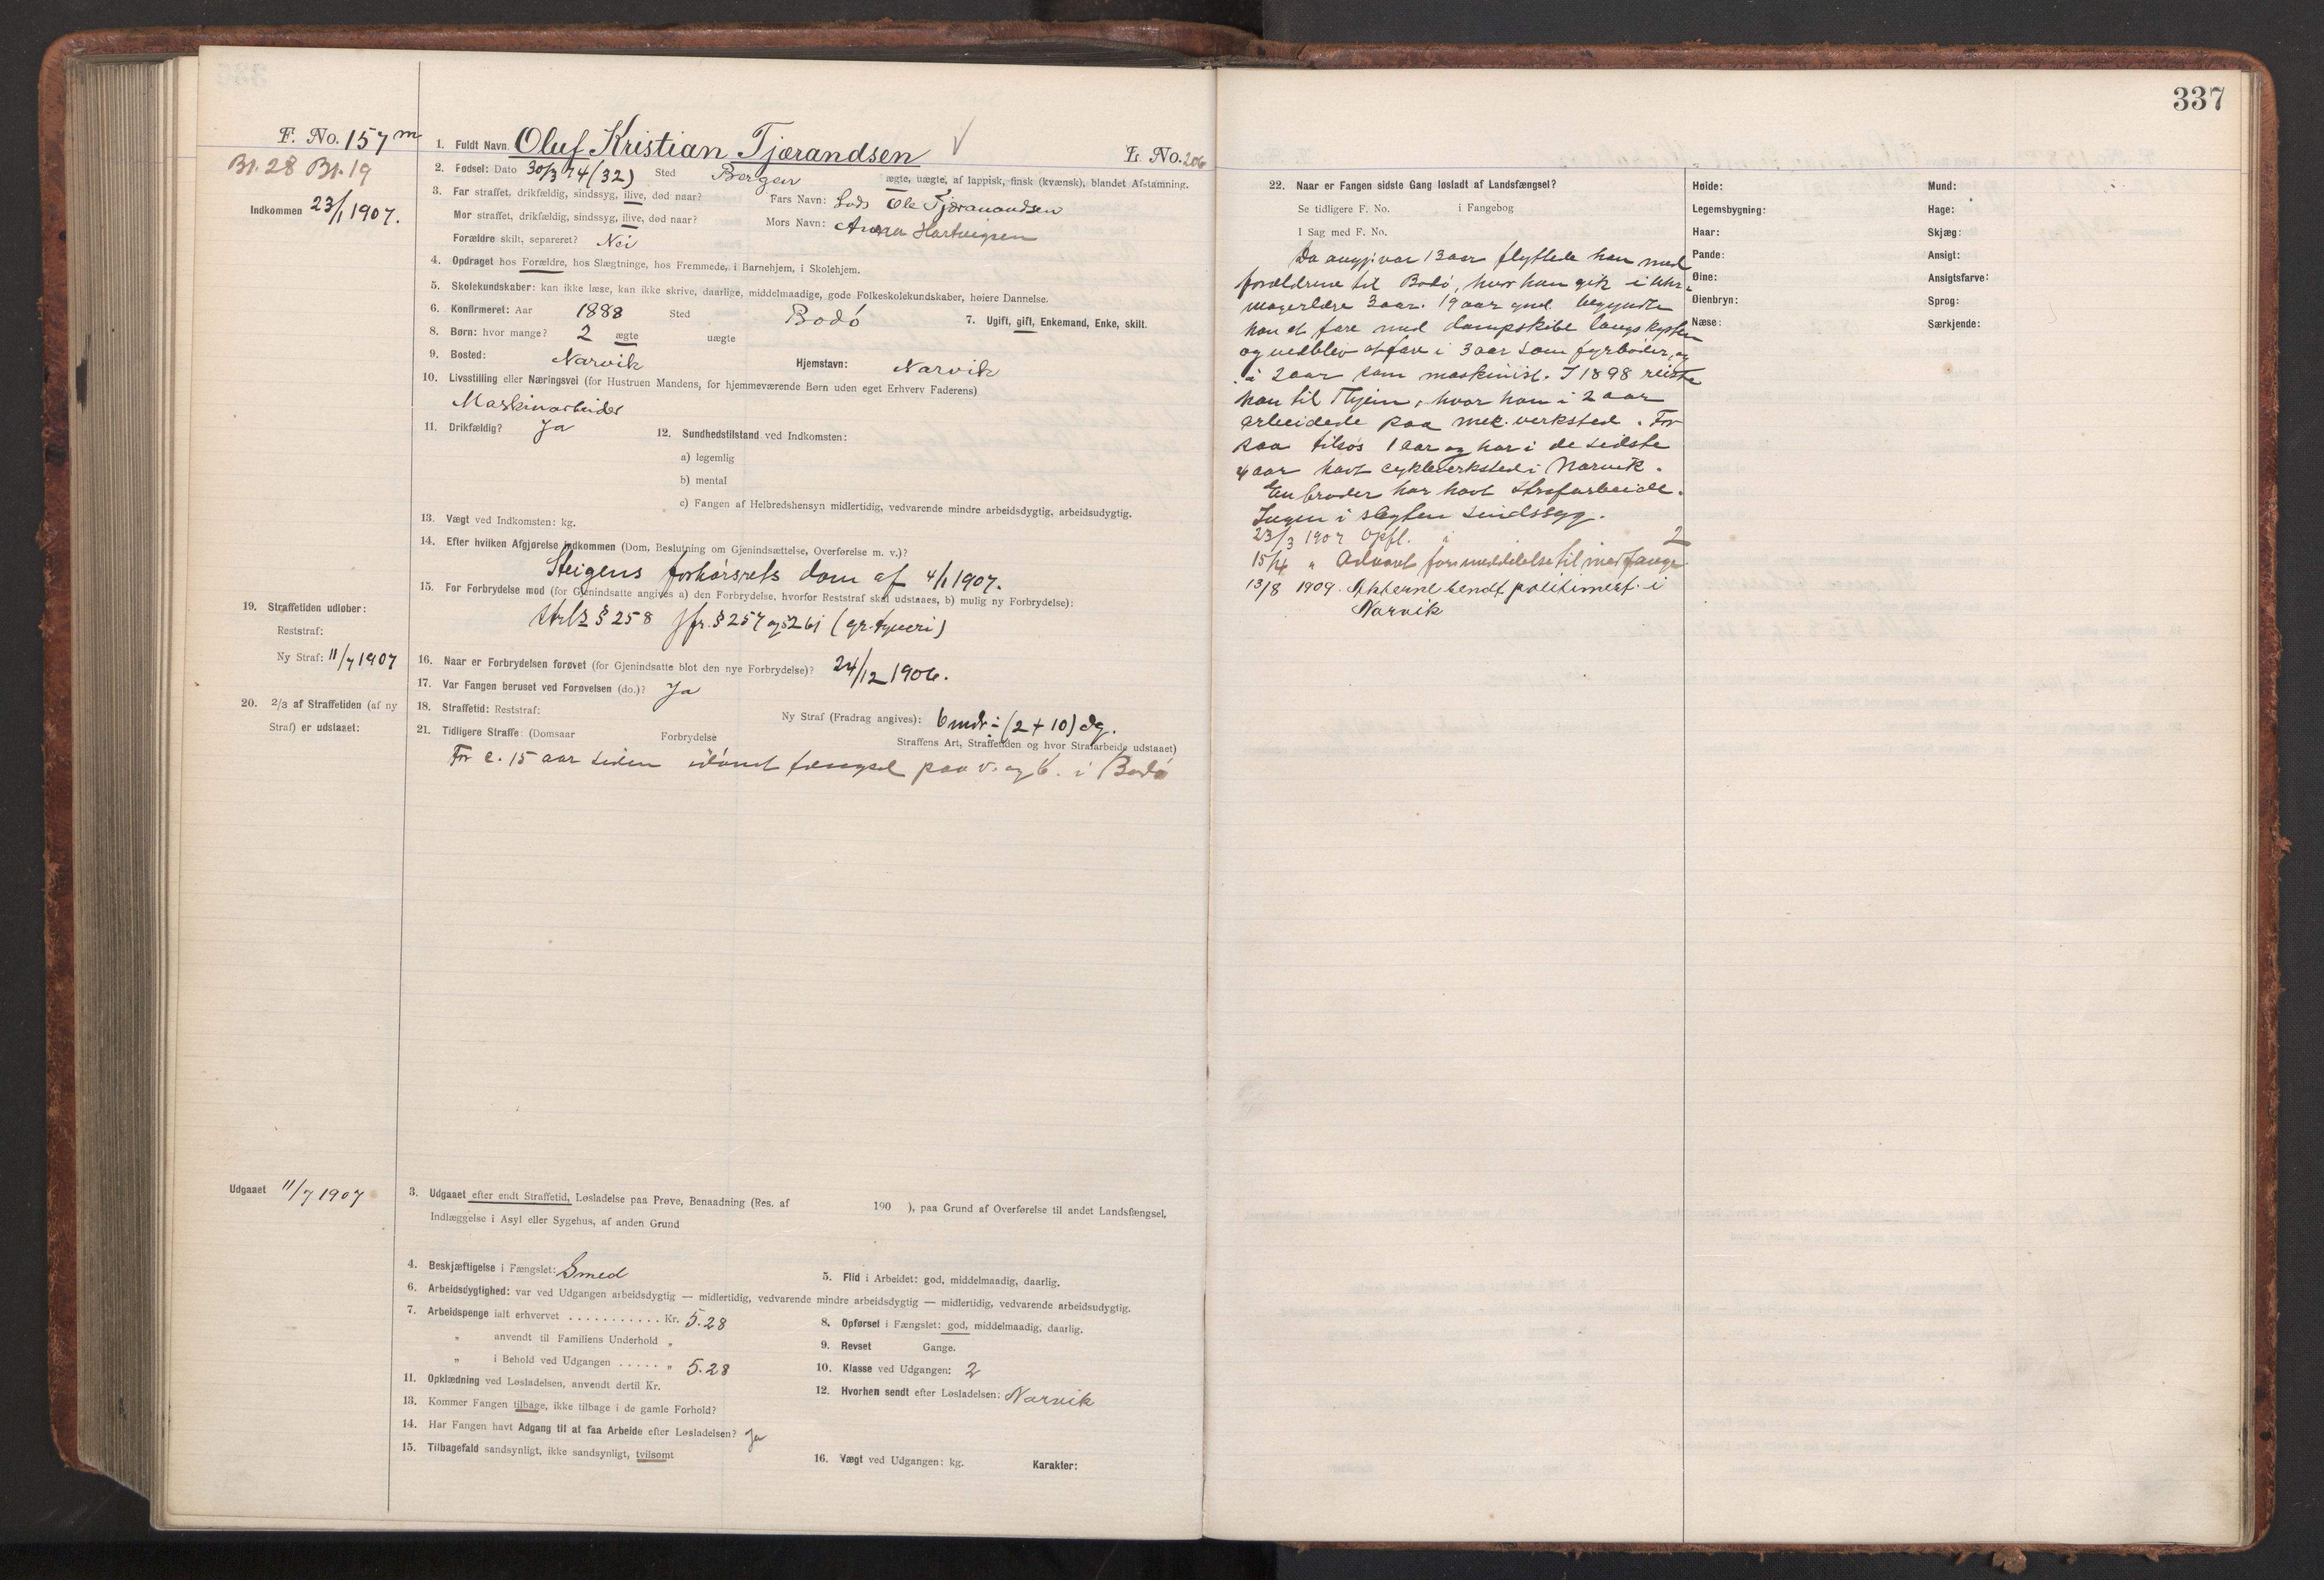 F. No. 157 m
Bl. 28 Bl. 19
Indkommen 23/1 1907.
1. Fuldt Navn Oluf Kristian Tjærandsen L No. 206
2. Fødsel: Dato 30/3 74 (32) Sted Bergen ægte, uægte, af lappisk, finsk (kvænsk), blandet Afstamning.
3. Far straffet, drikfældig, sindssyg, ilive, død naar? Fars Navn: Lods Ole Tjæranandsen
Mor straffet, drikfældig, sindssyg, ilive, død naar? Mors Navn: Anna Hartvigsen
Forældre skilt, separeret? Nei
4. Opdraget hos Forældre, hos Slægtninge, hos Fremmede, i Barnehjem, i Skolehjem.
5. Skolekundskaber: kan ikke læse, kan ikke skrive, daarlige, middelmaadige, gode Folkeskolekundskaber, høiere Dannelse.
6. Konfirmeret: Aar 1888 Sted Bodó 7. Ugift, gift, Enkemand, Enke, skilt.
8. Børn: hvor mange? 2 ægte uægte
9. Bosted: Narvik Hjemstavn: Narvik
10. Livsstilling eller Næringsvei (for Hustruen Mandens, for hjemmeværende Børn uden eget Erhverv Faderens)
Maskinarbeider
11. Drikfældig? Ja 12. Sundhedstilstand ved Indkomsten:
a) legemlig
b) mental
c) Fangen af Helbredshensyn midlertidig, vedvarende mindre arbeidsdygtig, arbeidsudygtig.
13. Vægt ved Indkomsten: kg.
14. Efter hvilken Afgjørelse indkommen (Dom, Beslutning om Gjenindsættelse, Overførelse m. v.)?
Steigens forhørsrets dom af 4/1 1907.
15. For Forbrydelse mod (for Gjenindsatte angives a) den Forbrydelse, hvorfor Reststraf skal udstaaes, b) mulig ny Forbrydelse):
Strl § 258 jfr. § 257 og § 261 (gr. tyveri)
19. Straffetiden udløber:
Reststraf:
Ny Straf: 11/7 1907
16. Naar er Forbrydelsen forøvet (for Gjenindsatte blot den nye Forbrydelse)? 24/12 1906.
17. Var Fangen beruset ved Forøvelsen (do.)? Ja
20. 2/3 af Straffetiden (af ny
Straf) er udstaaet:
18. Straffetid: Reststraf: Ny Straf (Fradrag angives): 6 mdr ÷ (2 + 10) dg.
21. Tidligere Straffe: (Domsaar Forbrydelse Straffens Art, Straffetiden og hvor Strafarbeide udstaaet)
For c. 15 aar siden idømt fængsel paa v. og b. i Bodó
Udgaaet 11/7 1907
3. Udgaaet efter endt Straffetid, Løsladelse paa Prøve, Benaadning (Res. af 190 ), paa Grund af Overførelse til andet Landsfængsel,
Indlæggelse i Asyl eller Sygehus, af anden Grund
4. Beskjæftigelse i Fængslet: Smed 5. Flid i Arbeidet: god, middelmaadig, daarlig.
6. Arbeidsdygtighed: var ved Udgangen arbeidsdygtig — midlertidig, vedvarende mindre arbeidsdygtig — midlertidig, vedvarende arbeidsudygtig.
7. Arbeidspenge ialt erhvervet . . . . . . . . . . . Kr. 5.28 8. Opførsel i Fængslet: god, middelmaadig, daarlig.
„ anvendt til Familiens Underhold „ 9. Revset Gange.
„ i Behold ved Udgangen . . . . . „ 5.28 10. Klasse ved Udgangen: 2
11. Opklædning ved Løsladelsen, anvendt dertil Kr. 12. Hvorhen sendt efter Løsladelsen: Narvik
13. Kommer Fangen tilbage, ikke tilbage i de gamle Forhold?
14. Har Fangen havt Adgang til at faa Arbeide efter Løsladelsen? Ja
15. Tilbagefald sandsynligt, ikke sandsynligt, tvilsomt
16. Vægt ved Udgangen: kg. Karakter:
337
22. Naar er Fangen sidste Gang løsladt af Landsfængsel?
Se tidligere F. No. i Fangebog
I Sag med F. No.
Da angj. var 13 aar flyttede han med
forældrene til Bodó, hvor han gik i uhr-
magerlære 3 aar. 19 aar gml. begyndte
han at fare med dampskibe langs kysten
og vedblev at fare i 3 aar som fyrbøder, og
i 2 aar som maskinist. I 1898 reiste
han til Thjem, hvor han i 2 aar
arbeidede paa mek. verksted. For
saa tilsøs 1 aar og har i de sidste
4 aar havt cykleverksted i Narvik.
En broder har havt strafarbeide.
Ingen i slegten sindssyg.
23/3 1907 Opfl. i 2
15/4 „ Advaret for meddelelse til medfange
13/8 1909. Akterne sendt politimest. i
Narvik
Høide:
Legemsbygning:
Haar:
Pande:
Øine:
Øienbryn:
Næse:
Mund:
Hage:
Skjæg:
Ansigt:
Ansigtsfarve:
Sprog:
Særkjende: